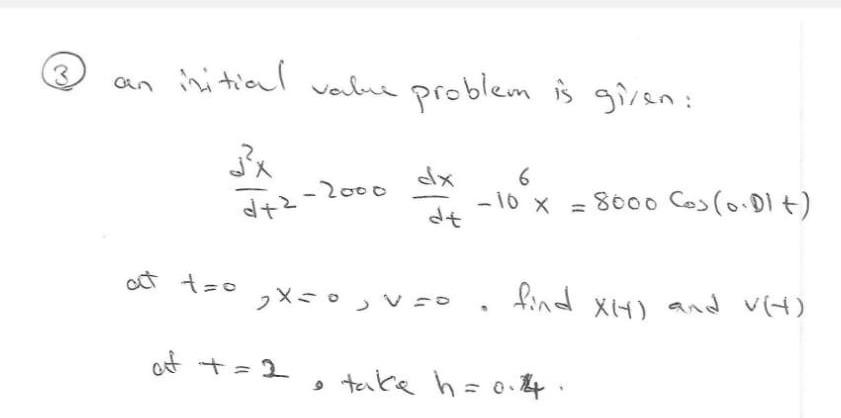 ③ an initial value problem is given:
d²x/dt² - 2000 dx/dt - 10⁶ x = 8000 Cos(0.01t)
at t=0 , x=0 , v=0 . find x(t) and v(t)
at t=2 , take h=0.4 .